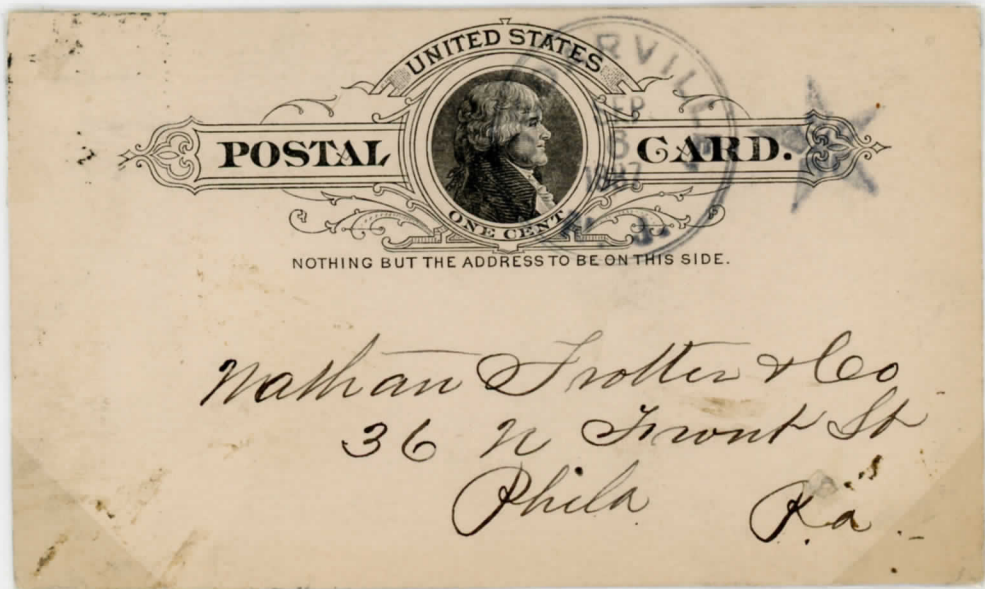 UNITED STATES
POSTAL CARD.
ONE CENT
NOTHING BUT THE ADDRESS TO BE ON THIS SIDE.
Nathan Trotter & Co
36 N Front St
Phila Pa
1887
N.J.